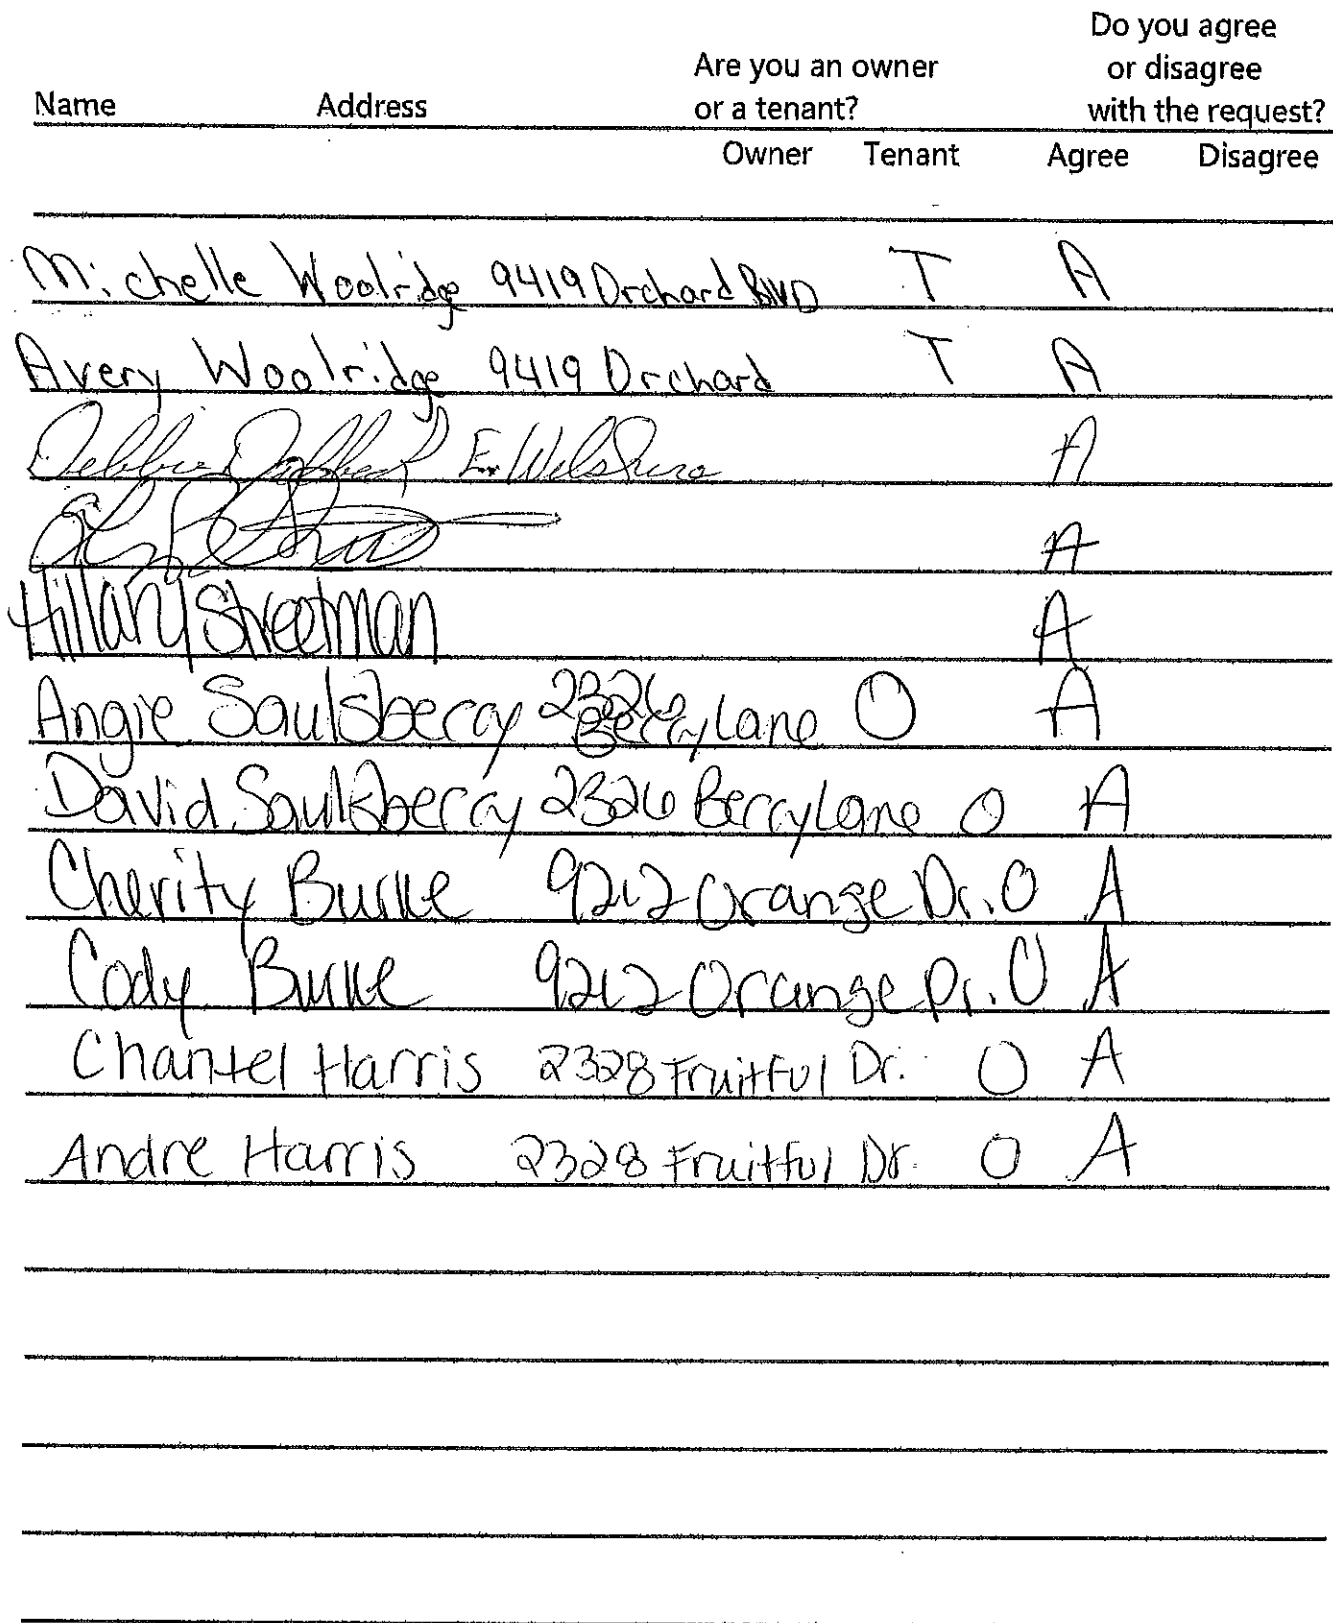 Do you agree
Are you an owner or disagree
Name Address or a tenant? with the request?
Owner Tenant Agree Disagree
Michelle Woolridge 9419 Orchard BLVD T A
Avery Woolridge 9419 Orchard T A
Debbie E. Wilshire A
A
Hillary Streetman A
Angie Saulsberry 2326 Berry Lane O A
David Saulsberry 2326 Berry Lane O A
Cherity Burke 9212 Orange Dr. O A
Cody Burke 9212 Orange Dr. O A
Chantel Harris 2328 Fruitful Dr. O A
Andre Harris 2328 Fruitful Dr. O A